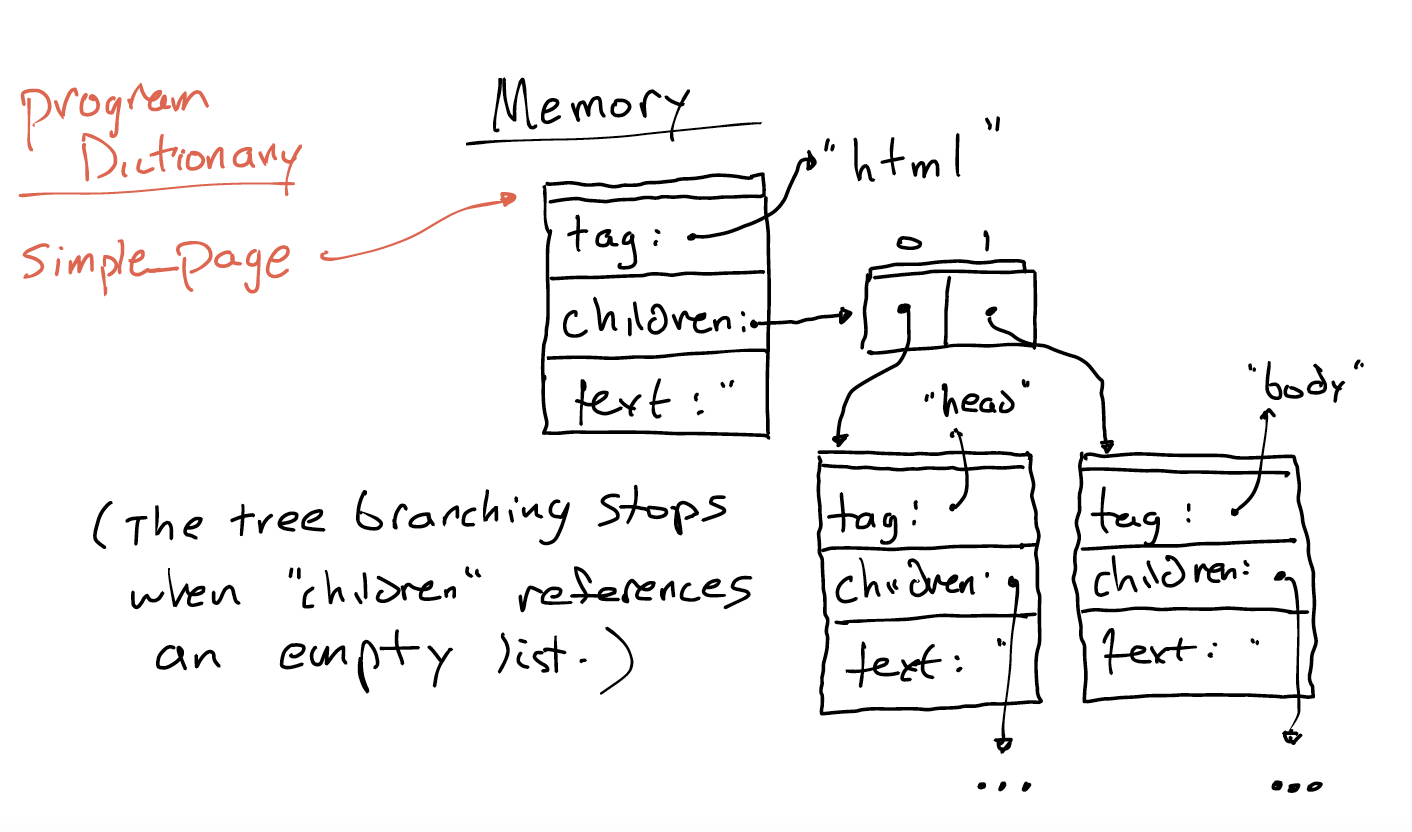 program
Dictionary
simple_page
Memory
tag:
"html"
children:
text: "
0 1
"head"
"body"
tag:
children:
text: "
tag:
children:
text: "
...
...
(The tree branching stops
when "children" references
an empty list.)